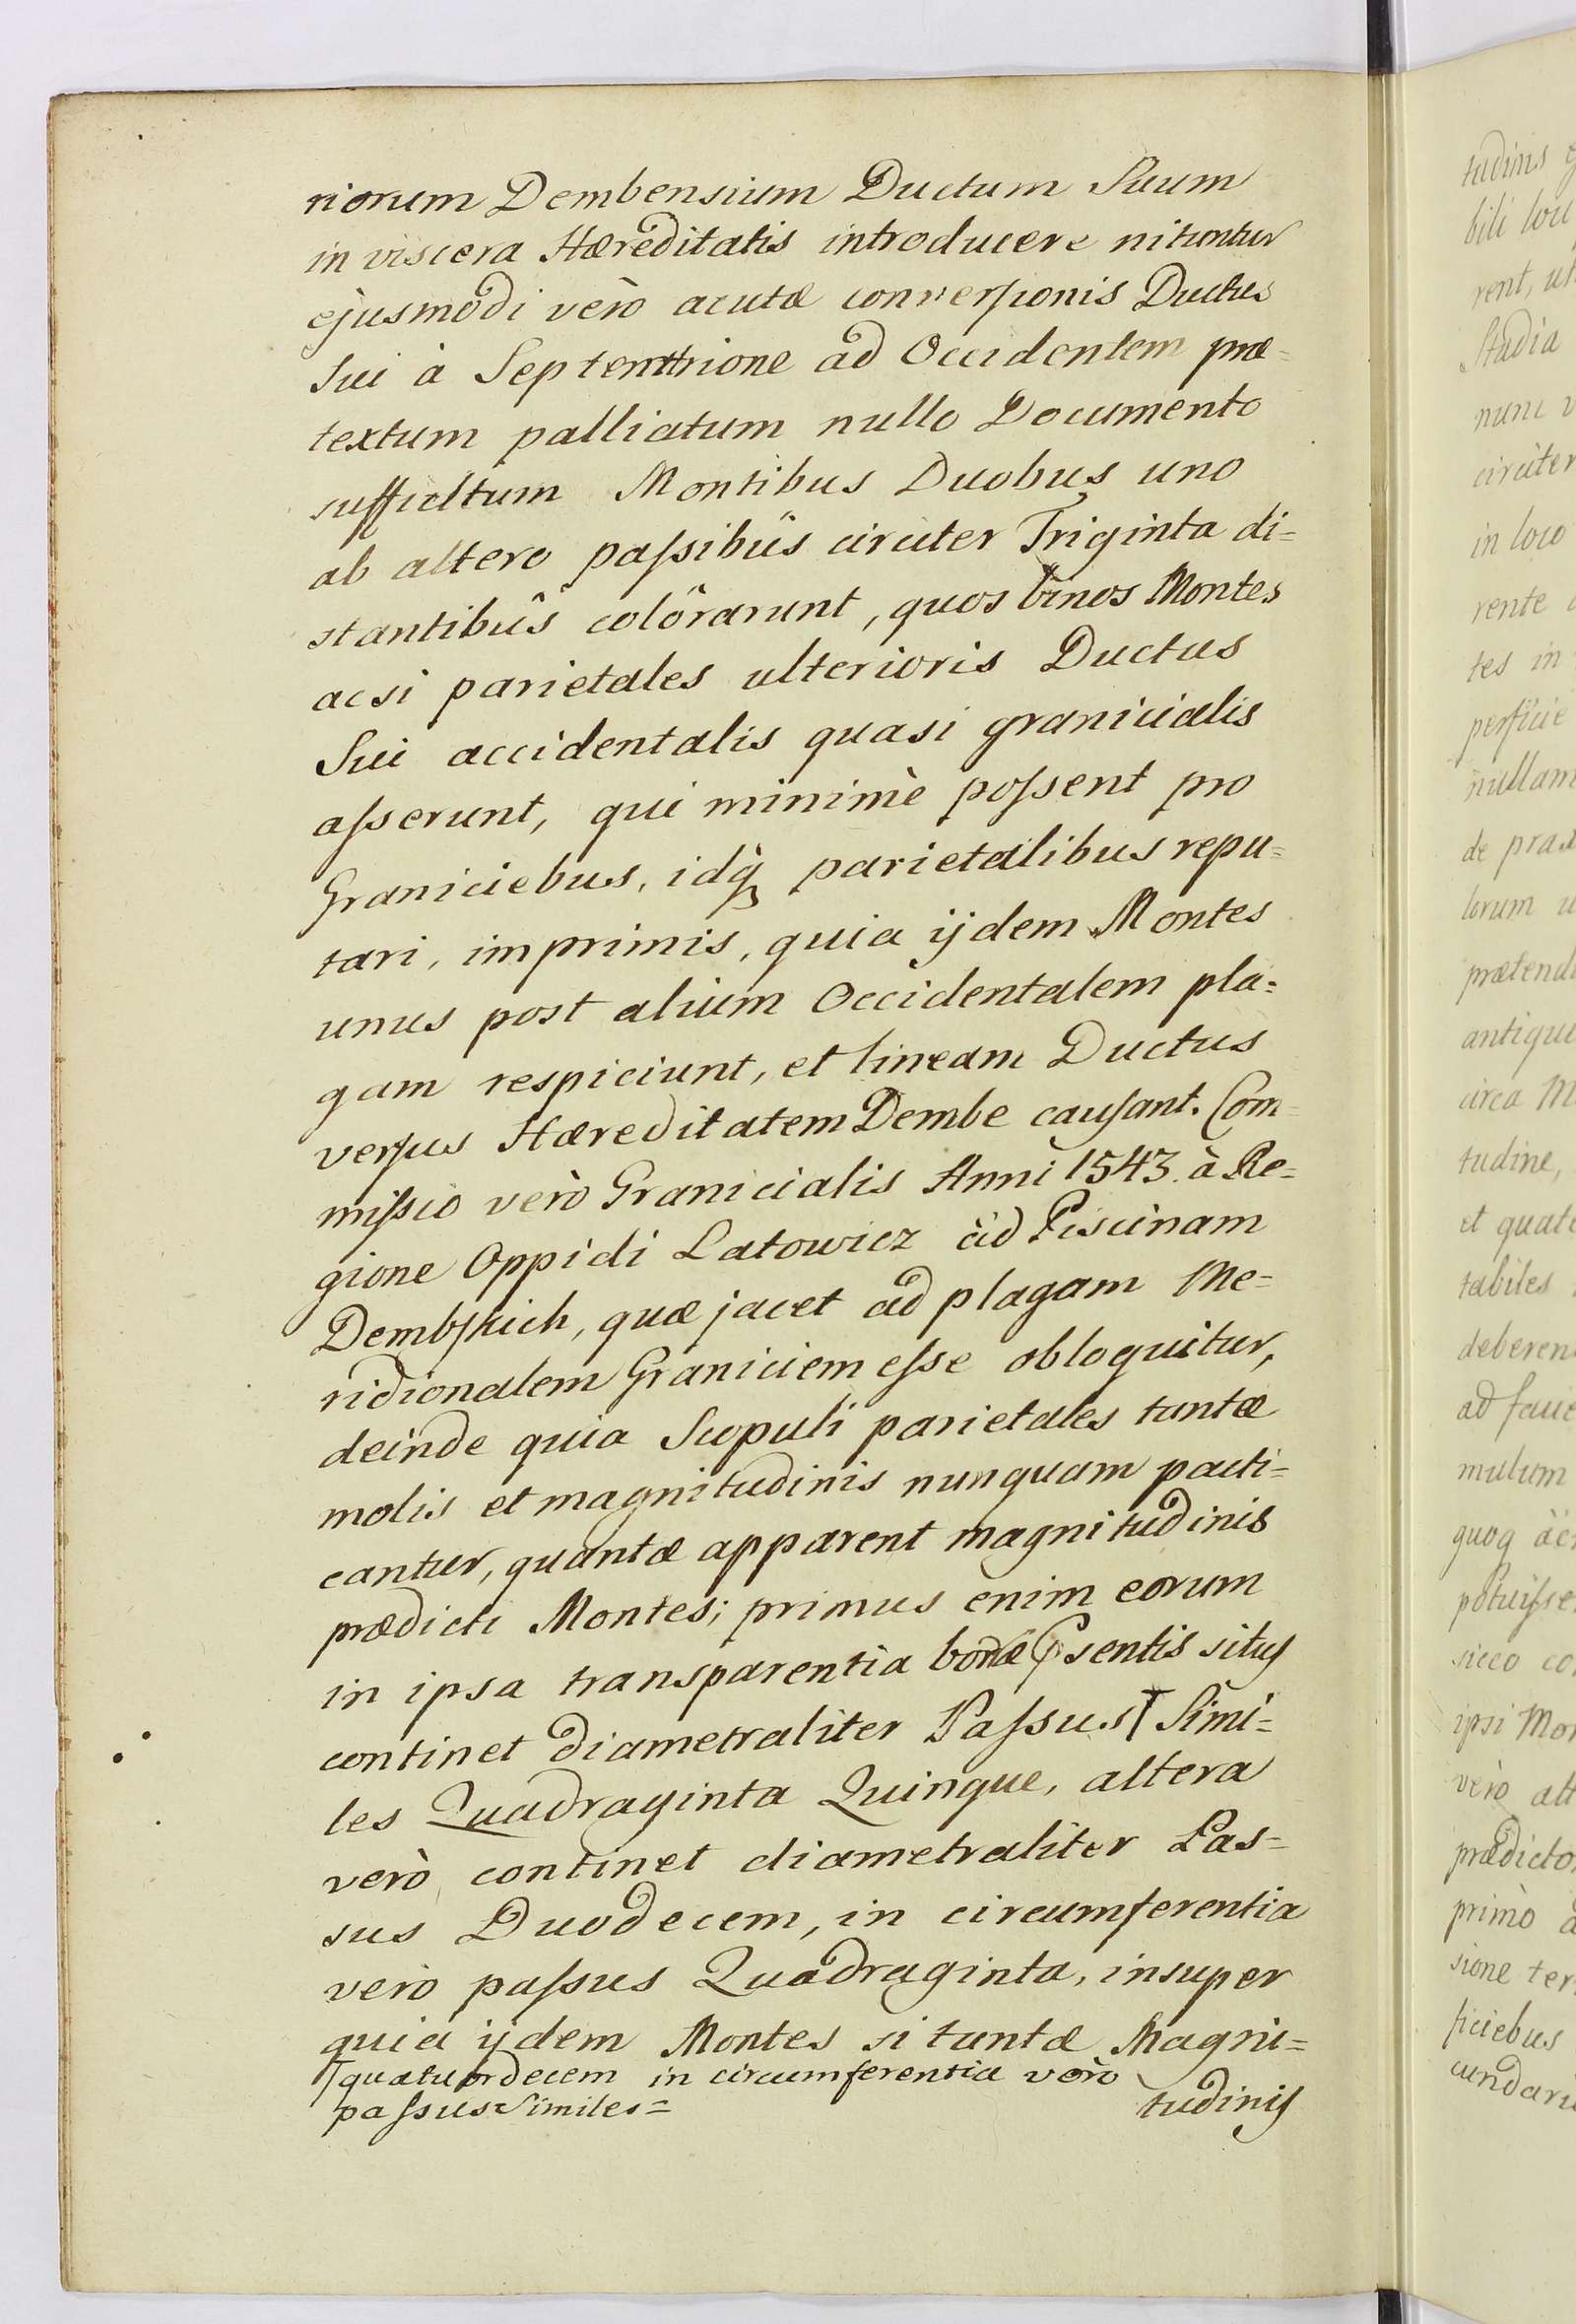 riorum Dembensium Ductum Suum
in viscera Hæreditatis introducere nituntur
ejusmodi verò acutæ conversionis Ductus
Sui à Septemtrione ad Occidentem præ=
textum palliatum nullo Documento
suffultum Montibus Duobus uno
ab altero passibûs circiter Triginta di=
stantibûs colôrarunt, quos binos Montes
acsi parietales ulterioris Ductus
Sui accidentalis quasi granicialis
asserunt, qui minimè possent pro
Graniciebus, idq parietalibus repu=
tari, imprimis, quia ijdem Montes
unus post alium Occidentalem pla=
gam respiciunt, et lineam Ductus
versus Hæreditatem Dembe causant. Com=
missio verò Granicialis Anni 1543. à Re=
gione Oppidi Latowicz ad Piscinam
Dembskich, quæ jacet ad plagam Me=
ridionalem Graniciem esse obloquitur,
deinde quia Scopuli parietales tantæ
molis et magnitudinis nunquam pacti=
cantur, quantæ apparent magnitudinis
prædicti Montes; primus enim eorum
in ipsa transparentia bonæ sentis situs
continet diametraliter Passus Simi=
les Quadraginta Quinque, altera
verò continet diametraliter Pas=
sus Duodecem, in circumferentia
vero passus Quadraginta, insuper
quia ijdem Montes si tantæ Magni=
quatuordecem in circumferentia verò
passus Similes=
tudinis
tudinis
bili
rent,
Studia
nunc
circiter
in loco
rente
tes in
perficie
nullam
de
lorum
antique
circa M
tudine,
et
tabiles
deberen
ad
mulum
quoq
potuisse
sicco
ipsi Mon
verò alt
prædicto
primò
sione ter
ficiebus
cundari